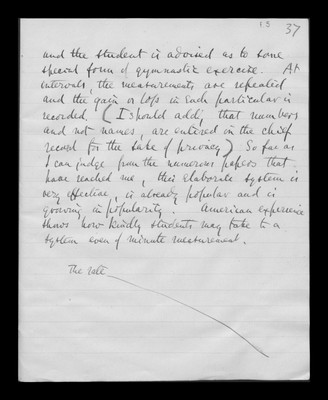 13 37
and the student is advised as to some
special form of gymnastic exercise. At
intervals, the measurements are repeated
and the gain or loss in each particular is
recorded. (I should add, that numbers
and not names, are entered in the chief
record for the sake of privacy) So far as
I can judge from the numerous papers that
have reached me, this elaborate system is
very effective, is already popular and is
growing in popularity. American experience
shows how kindly students may take to a
system even of minute measurement.
The rate